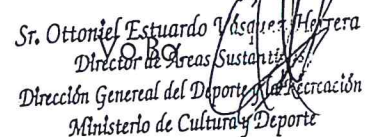 Sr. Ottoniel Estuardo Vásquez Herrera
Vo Bo
Director de Areas Sustantivas
Dirección Genereal del Deporte y la Recreación
Ministerio de Cultura y Deporte